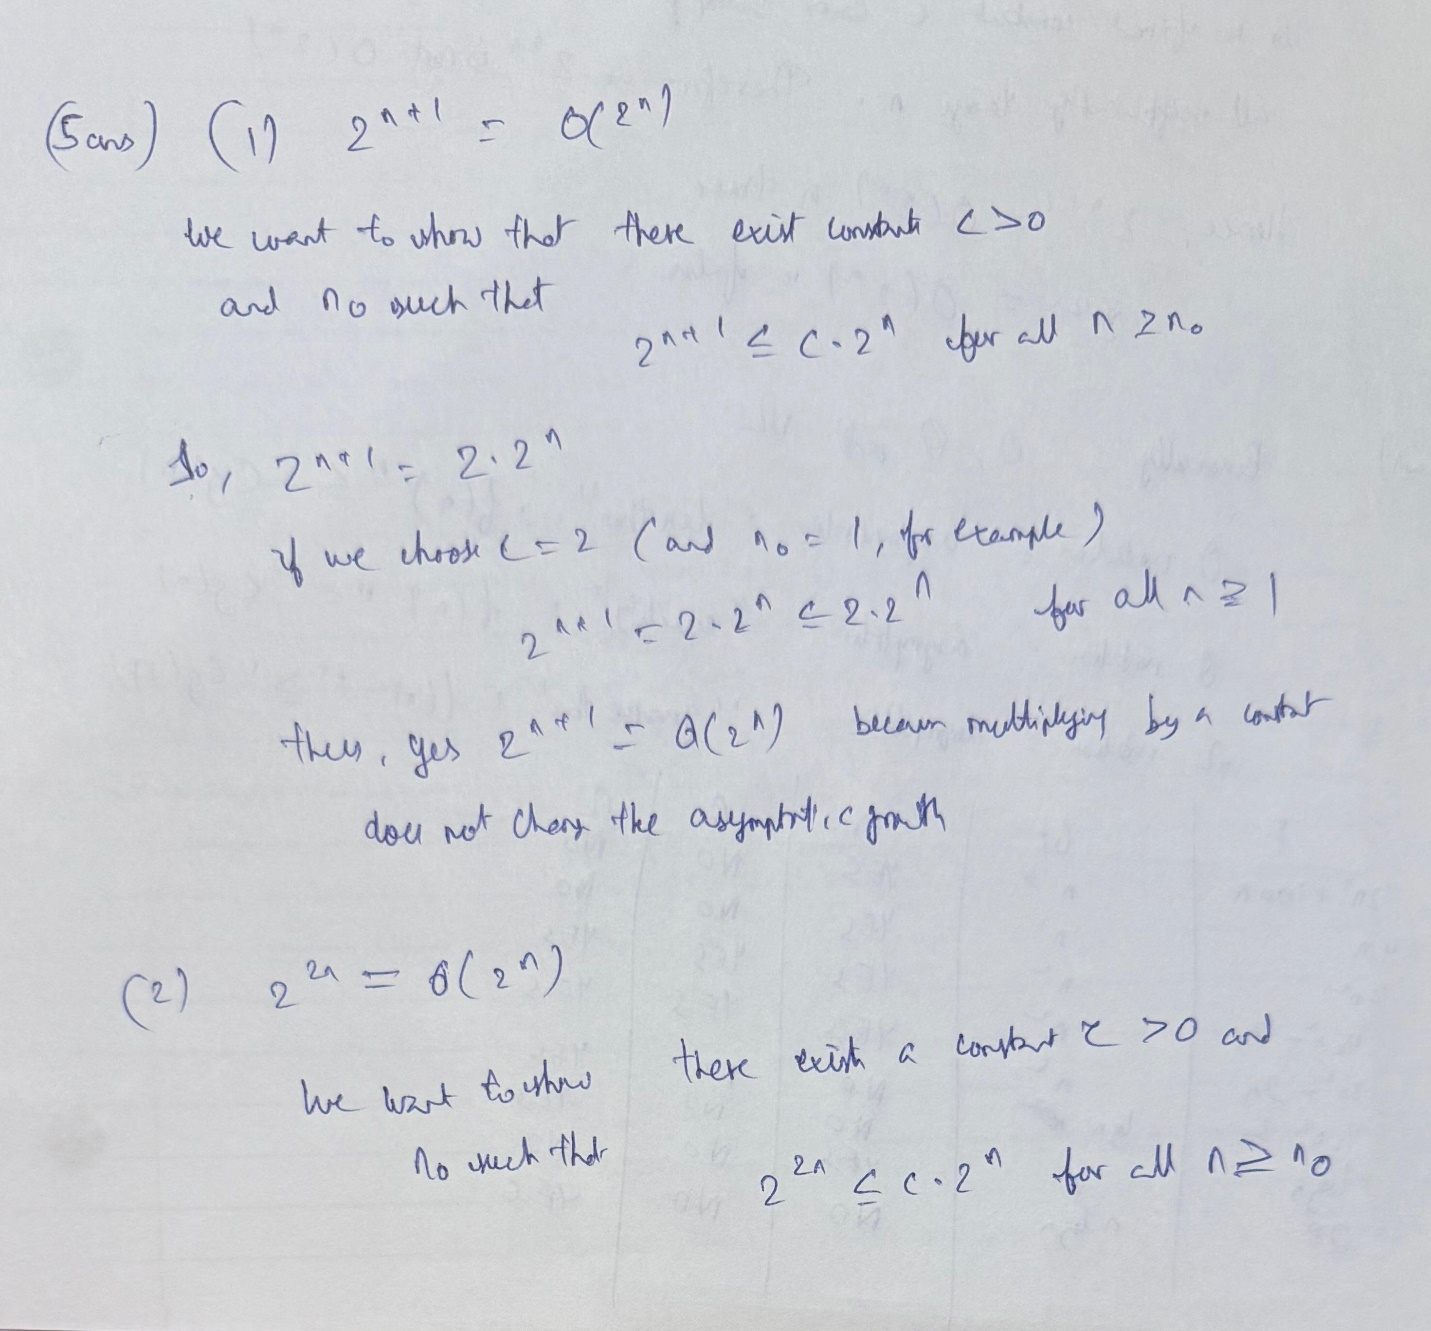 (5 ans) (1) 2^{n+1} = O(2^n)
We want to show that there exist constants c>0
and n₀ such that
2^{n+1} ≤ c.2^n for all n ≥ n₀
So, 2^{n+1} = 2.2^n
if we choose c=2 (and n₀ = 1, for example)
2^{n+1} = 2.2^n ≤ 2.2^n for all n ≥ 1
thus, yes 2^{n+1} = O(2^n) because multiplying by a constant
does not change the asymptotic growth
(2) 2^{2n} = O(2^n)
We want to show there exists a constant c >0 and
n₀ such that
2^{2n} ≤ c.2^n for all n ≥ n₀